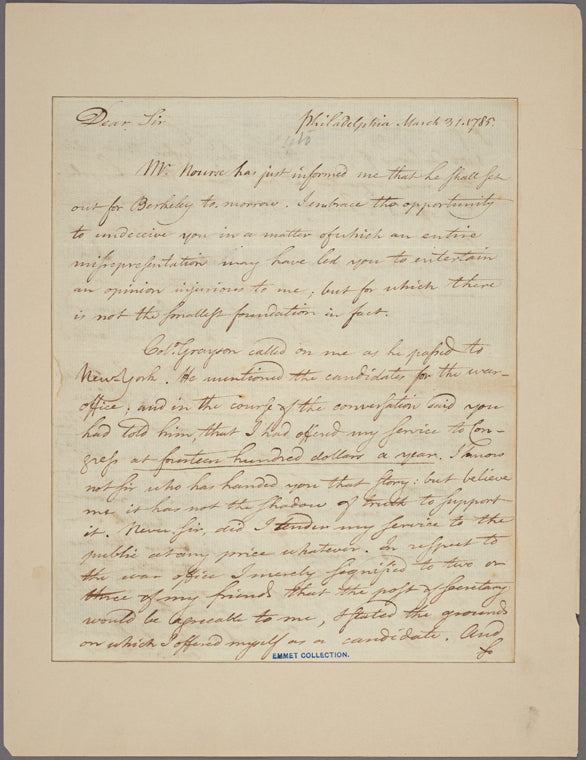 Dear Sir
Philadelphia March 31. 1785.
Mr. Nourse has just informed me that he shall set
out for Berkeley to morrow. I embrace the opportunity
to undeceive you in a matter of which an entire
misrepresentation may have led you to entertain
an opinion injurious to me; but for which there
is not the smallest foundation in fact.
Colo. Grayson called on me as he passed to
New-York. He mentioned the candidates for the war-
office; and in the course of the conversation said you
had told him, that I had offered my service to Con-
gress at fourteen hundred dollars a year. I know
not sir who has handed you that story: but believe
me it has not the shadow of truth to support
it. Never, sir, did I tender my service to the
public at any price whatever. In respect to
the war office I merely signified to two or
three of my friends that the post of Secretary
would be agreeable to me, & stated the grounds
on which I offered myself as a candidate. And
so
EMMET COLLECTION.